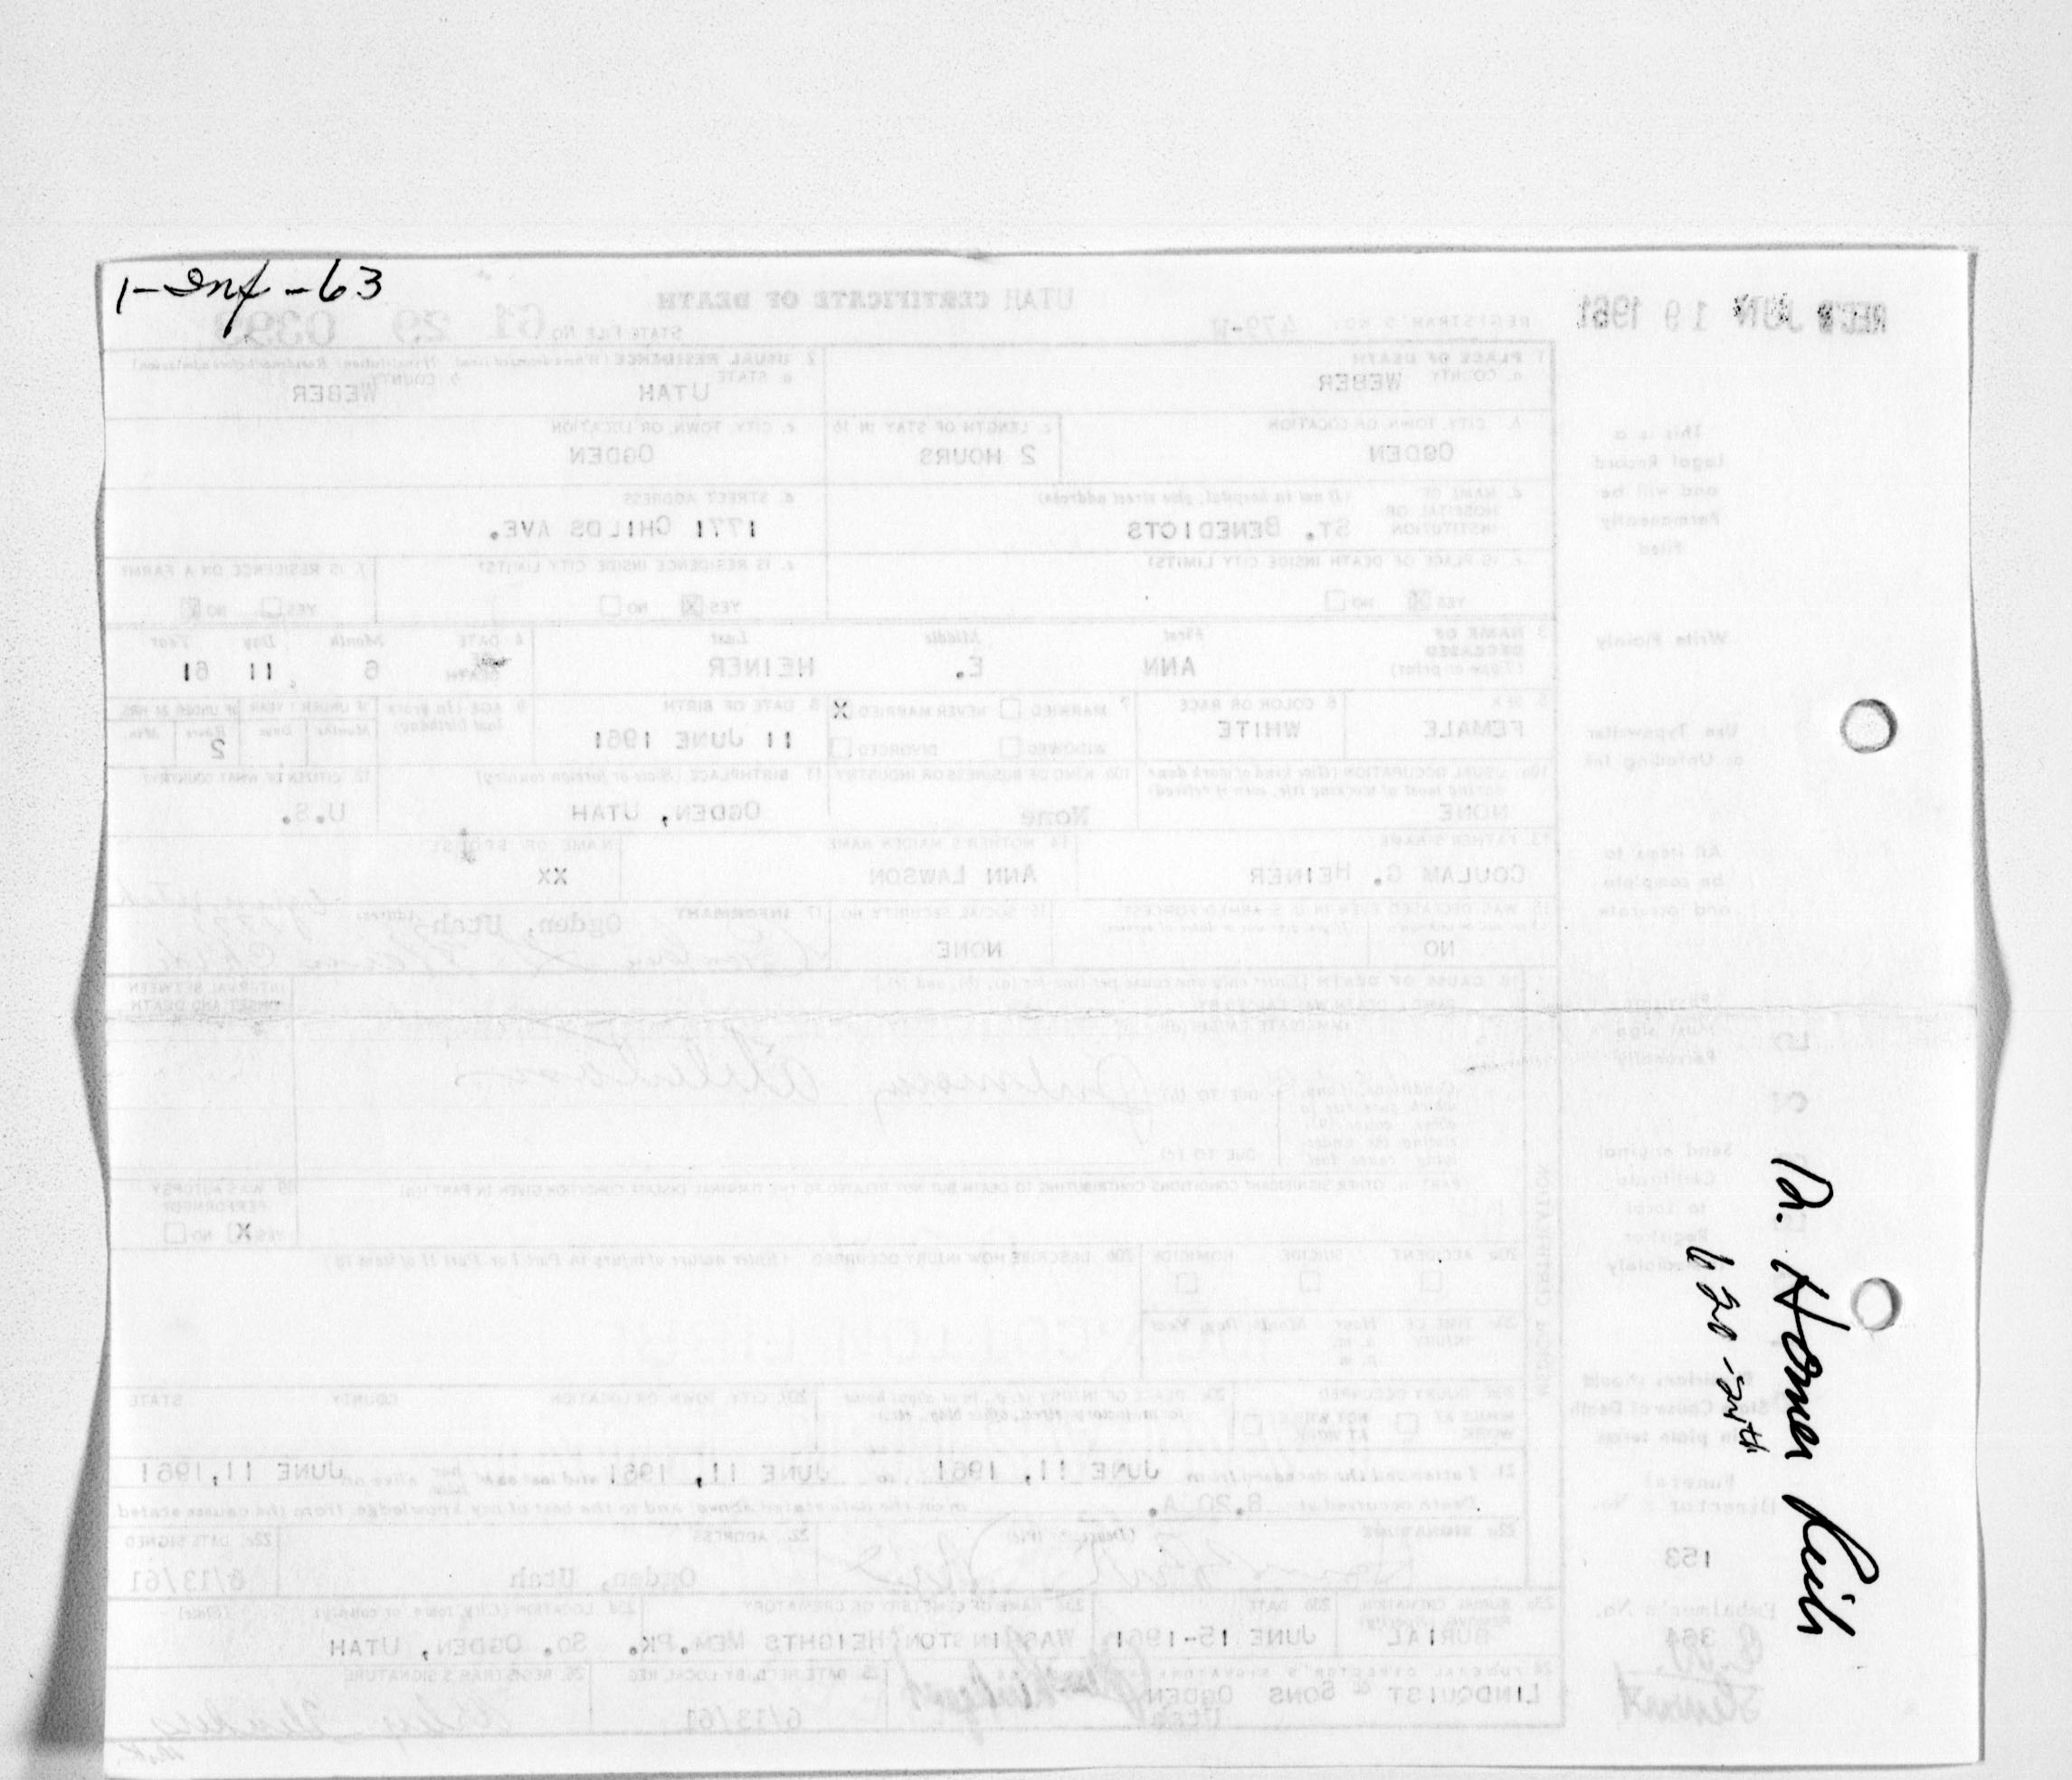 1-Inf-63
REC'D JUN 19 1961
UTAH CERTIFICATE OF DEATH
REGISTRAR'S NO. 479-W
STATE FILE NO. 61 29
This is a
Legal Record
and will be
Permanently
Filed
1. PLACE OF DEATH
a. COUNTY WEBER
2. USUAL RESIDENCE
a. STATE UTAH
b. COUNTY WEBER
b. CITY, TOWN, OR LOCATION
OGDEN
c. LENGTH OF STAY IN 1b
2 HOURS
c. CITY, TOWN, OR LOCATION
OGDEN
d. NAME OF HOSPITAL OR INSTITUTION (If not in hospital, give street address)
ST. BENEDICTS
d. STREET ADDRESS
1771 CHILDS AVE.
e. IS PLACE OF DEATH INSIDE CITY LIMITS?
YES NO
e. IS RESIDENCE INSIDE CITY LIMITS?
YES NO
f. IS RESIDENCE ON A FARM?
YES NO
Write Plainly
3. NAME OF DECEASED (Type or print)
First Middle Last
ANN E. HEINER
4. DATE OF DEATH
Month Day Year
6 11 61
Use Typewriter
or Unfading Ink
5. SEX
FEMALE
6. COLOR OR RACE
WHITE
7. MARRIED NEVER MARRIED X
WIDOWED DIVORCED
8. DATE OF BIRTH
11 JUNE 1961
9. AGE (In years last birthday)
IF UNDER 1 YEAR
Months Days
IF UNDER 24 HRS.
Hours Min.
2
10a. USUAL OCCUPATION (Give kind of work done during most of working life, even if retired)
NONE
10b. KIND OF BUSINESS OR INDUSTRY
None
11. BIRTHPLACE (State or foreign country)
OGDEN, UTAH
12. CITIZEN OF WHAT COUNTRY?
U.S.
All items to
be complete
and accurate
13. FATHER'S NAME
COULAM G. HEINER
14. MOTHER'S MAIDEN NAME
ANN LAWSON
NAME OF SPOUSE
XX
15. WAS DECEASED EVER IN U. S. ARMED FORCES?
NO
16. SOCIAL SECURITY NO.
NONE
17. INFORMANT
Ogden, Utah
18. CAUSE OF DEATH (Enter only one cause per line for (a), (b), and (c).)
PART I. DEATH WAS CAUSED BY
IMMEDIATE CAUSE (a)
INTERVAL BETWEEN
ONSET AND DEATH
Physician
Must Sign
Personally
DUE TO (b) Pulmonary Atelectasis
DUE TO (c)
Send original
Certificate
to Local
Registrar
Immediately
PART II. OTHER SIGNIFICANT CONDITIONS CONTRIBUTING TO DEATH BUT NOT RELATED TO THE TERMINAL DISEASE CONDITION GIVEN IN PART I(a)
19. WAS AUTOPSY PERFORMED?
YES X NO
20a. ACCIDENT SUICIDE HOMICIDE
20b. DESCRIBE HOW INJURY OCCURRED (Enter nature of injury in Part I or Part II of item 18)
20c. TIME OF INJURY
Hour Month, Day, Year
a. m.
p. m.
MEDICAL CERTIFICATION
20d. INJURY OCCURRED
WHILE AT WORK NOT WHILE AT WORK
20e. PLACE OF INJURY
20f. CITY, TOWN, OR LOCATION COUNTY STATE
Physicians should
State Cause of Death
in plain terms
21. I attended the deceased from JUNE 11, 1961 to JUNE 11, 1961 and last saw her alive on JUNE 11,1961
Death occurred at 8.20 A. m on the date stated above, and to the best of my knowledge, from the causes stated
Funeral
Director's No.
153
22a. SIGNATURE (Degree or title)
22b. ADDRESS
Ogden, Utah
22c. DATE SIGNED
6/13/61
Embalmer's No.
364
23a. BURIAL, CREMATION, REMOVAL (Specify)
BURIAL
23b. DATE
JUNE 15-1961
23c. NAME OF CEMETERY OR CREMATORY
WASHINGTON HEIGHTS MEM.PK.
23d. LOCATION (City, town, or county) (State)
SO. OGDEN, UTAH
24. FUNERAL DIRECTOR'S SIGNATURE
LINDQUIST & SONS OGDEN
Utah
25. DATE REC'D BY LOCAL REG.
6/13/61
26. REGISTRAR'S SIGNATURE
Dr. Homer Rich